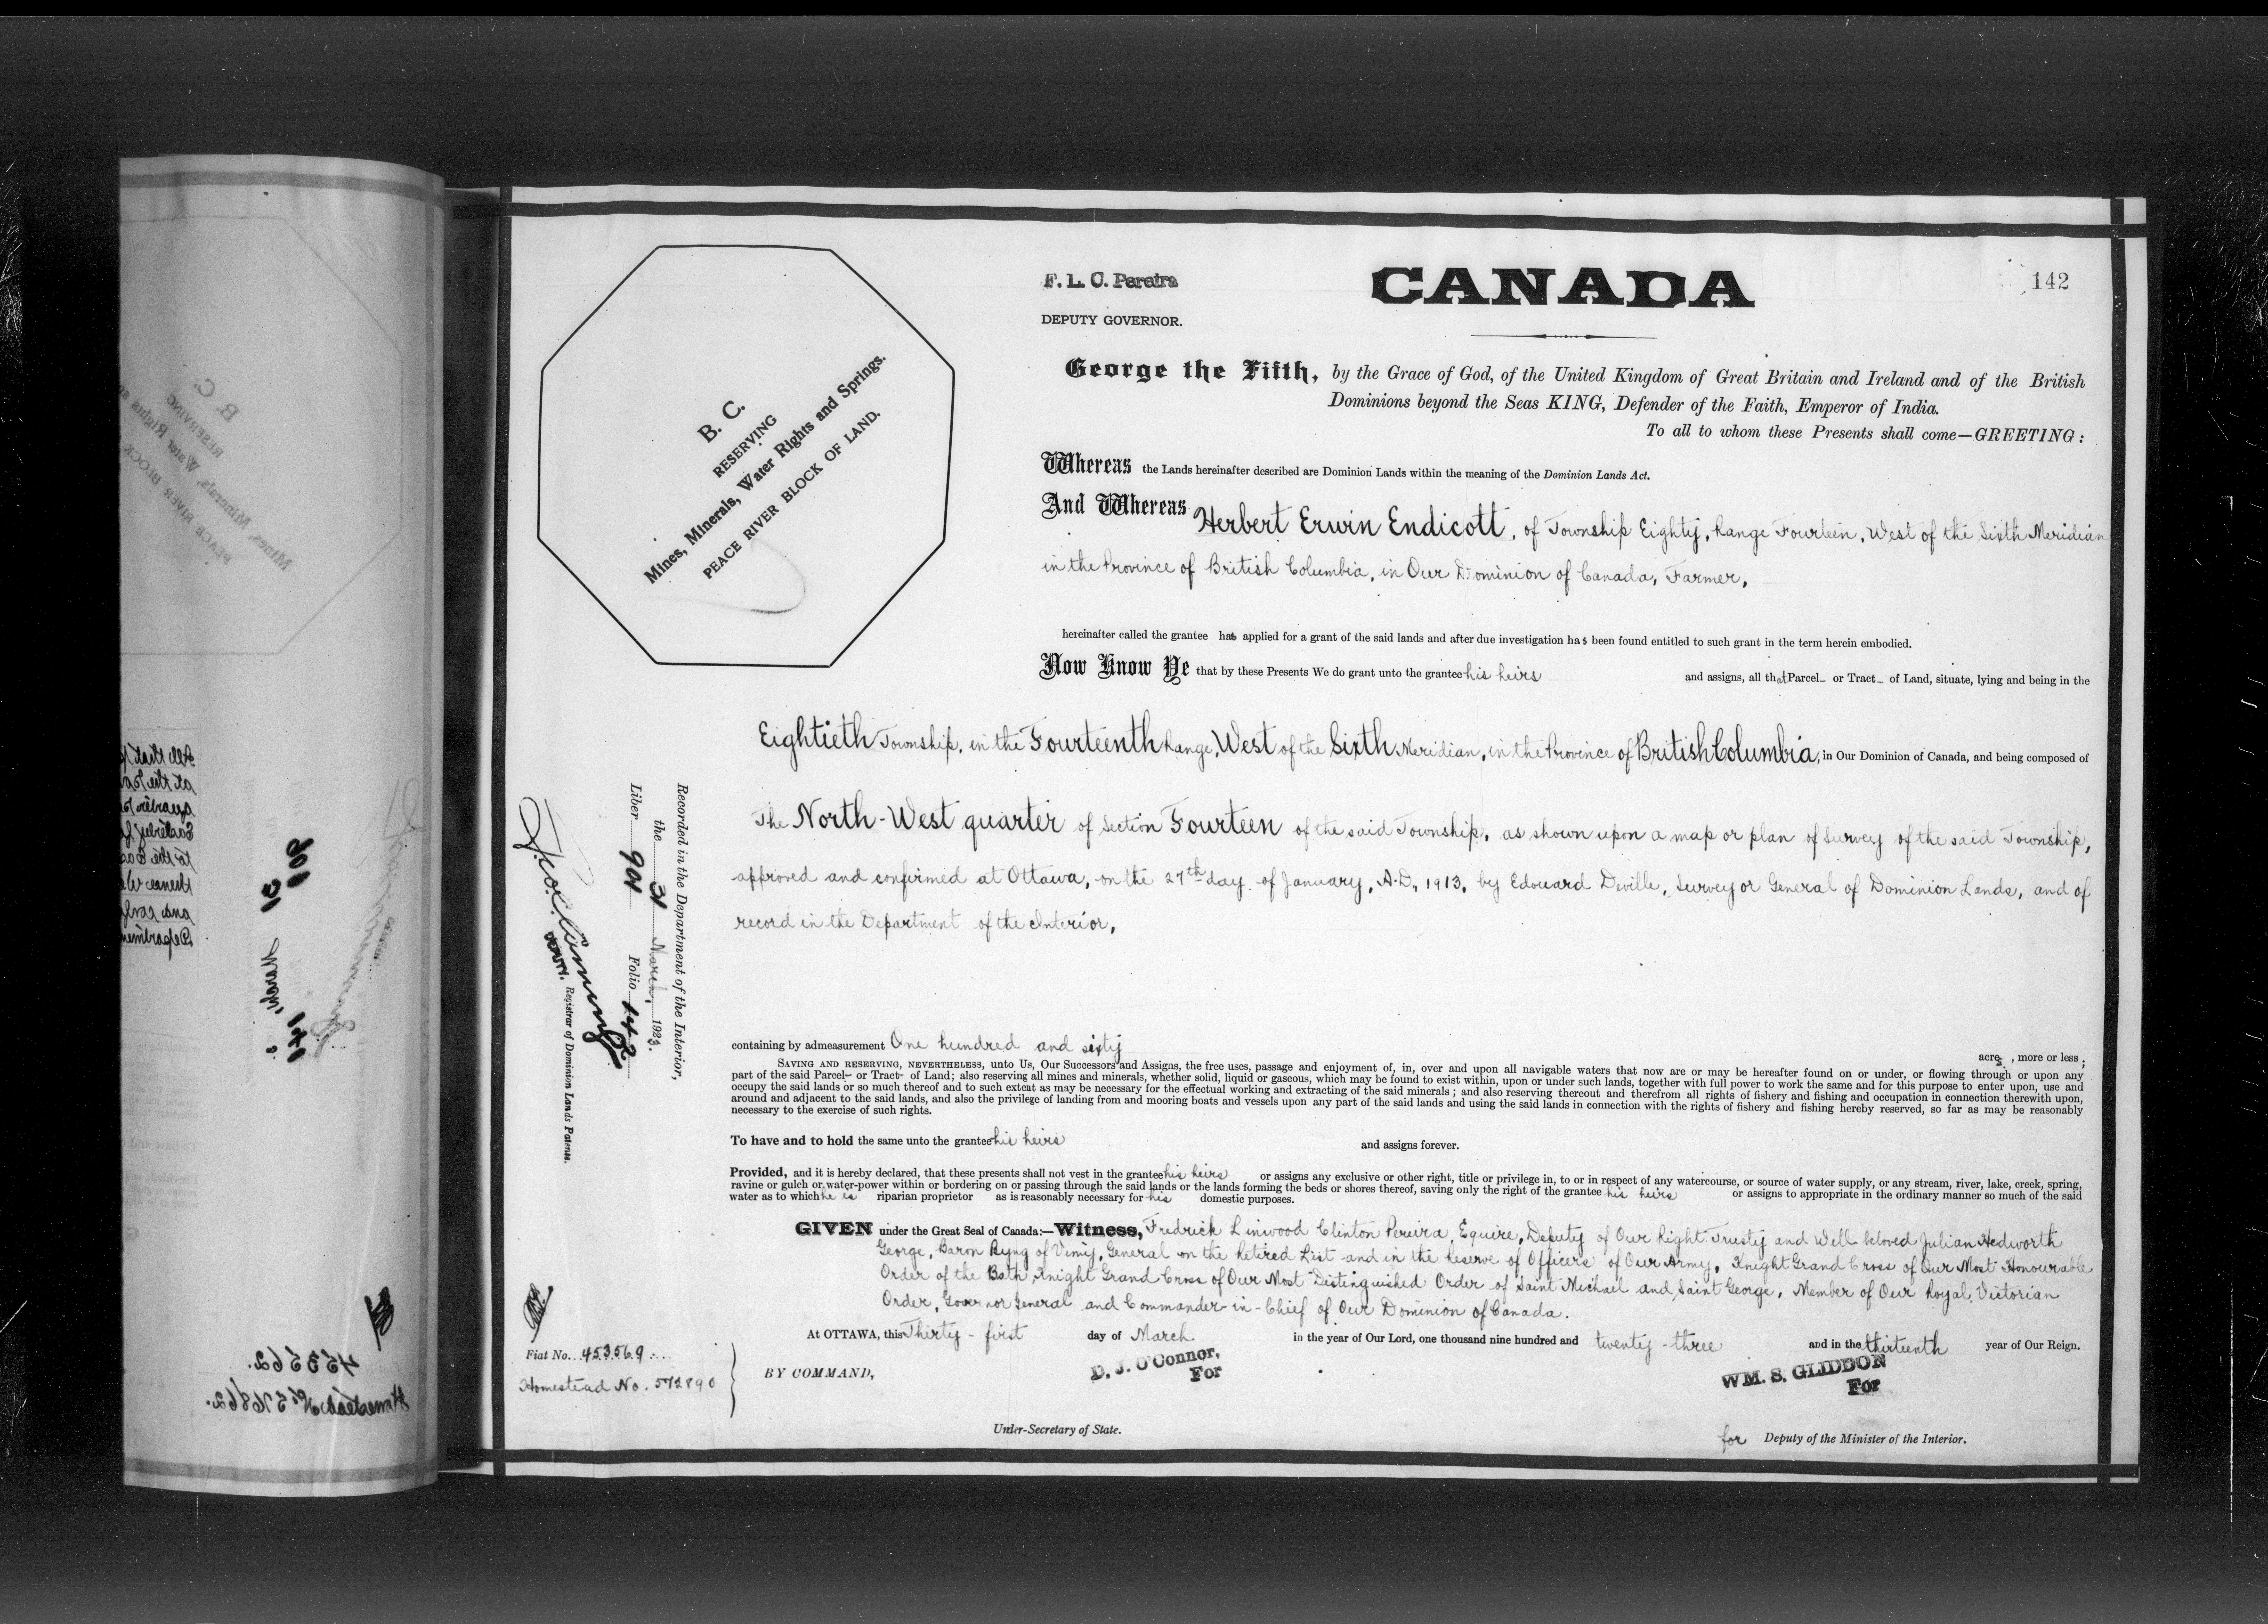 F. L. C. Pereira
DEPUTY GOVERNOR.
CANADA
142
B. C.
RESERVING
Mines, Minerals, Water Rights and Springs.
PEACE RIVER BLOCK OF LAND.
George the Fifth, by the Grace of God, of the United Kingdom of Great Britain and Ireland and of the British
Dominions beyond the Seas KING, Defender of the Faith, Emperor of India.
To all to whom these Presents shall come—GREETING:
Whereas the Lands hereinafter described are Dominion Lands within the meaning of the Dominion Lands Act.
And Whereas Herbert Erwin Endicott, of Township Eighty, Range Fourteen, West of the Sixth Meridian
in the Province of British Columbia, in Our Dominion of Canada, Farmer,
hereinafter called the grantee has applied for a grant of the said lands and after due investigation has been found entitled to such grant in the term herein embodied.
Now Know Ye that by these Presents We do grant unto the grantee his heirs and assigns, all that Parcel or Tract of Land, situate, lying and being in the
Eightieth Township, in the Fourteenth Range, West of the Sixth Meridian, in the Province of British Columbia, in Our Dominion of Canada, and being composed of
The North-West quarter of Section Fourteen of the said Township, as shown upon a map or plan of survey of the said Township,
approved and confirmed at Ottawa, on the 27th day of January, A.D. 1913, by Edouard Deville, Surveyor General of Dominion Lands, and of
record in the Department of the Interior,
Recorded in the Department of the Interior,
the 31 March, 1923.
Liber 901 Folio 142
DEPUTY. Registrar of Dominion Lands Patents.
containing by admeasurement One hundred and sixty acres, more or less;
SAVING AND RESERVING, NEVERTHELESS, unto Us, Our Successors and Assigns, the free uses, passage and enjoyment of, in, over and upon all navigable waters that now are or may be hereafter found on or under, or flowing through or upon any
part of the said Parcel or Tract of Land; also reserving all mines and minerals, whether solid, liquid or gaseous, which may be found to exist within, upon or under such lands, together with full power to work the same and for this purpose to enter upon, use and
occupy the said lands or so much thereof and to such extent as may be necessary for the effectual working and extracting of the said minerals; and also reserving thereout and therefrom all rights of fishery and fishing and occupation in connection therewith upon,
around and adjacent to the said lands, and also the privilege of landing from and mooring boats and vessels upon any part of the said lands and using the said lands in connection with the rights of fishery and fishing hereby reserved, so far as may be reasonably
necessary to the exercise of such rights.
To have and to hold the same unto the grantee his heirs and assigns forever.
Provided, and it is hereby declared, that these presents shall not vest in the grantee his heirs or assigns any exclusive or other right, title or privilege in, to or in respect of any watercourse, or source of water supply, or any stream, river, lake, creek, spring,
ravine or gulch or water-power within or bordering on or passing through the said lands or the lands forming the beds or shores thereof, saving only the right of the grantee his heirs or assigns to appropriate in the ordinary manner so much of the said
water as to which he is riparian proprietor as is reasonably necessary for his domestic purposes.
GIVEN under the Great Seal of Canada:—Witness, Fredrick Linwood Clinton Pereira, Equire, Deputy of Our Right Trusty and Well beloved Julian Hedworth
George, Baron Byng of Vimy, General on the Retired List and in the Reserve of Officers of Our Army, Knight Grand Cross of Our Most Honourable
Order of the Bath, Knight Grand Cross of Our Most Distinguished Order of Saint Michael and Saint George, Member of Our Royal Victorian
Order, Governor General and Commander-in-Chief of Our Dominion of Canada.
At OTTAWA, this Thirty-first day of March in the year of Our Lord, one thousand nine hundred and twenty-three and in the thirteenth year of Our Reign.
Fiat No. 453569
Homestead No. 572890
BY COMMAND,
D. J. O'Connor,
For
WM. S. GLIDDON
For
Under-Secretary of State.
for Deputy of the Minister of the Interior.